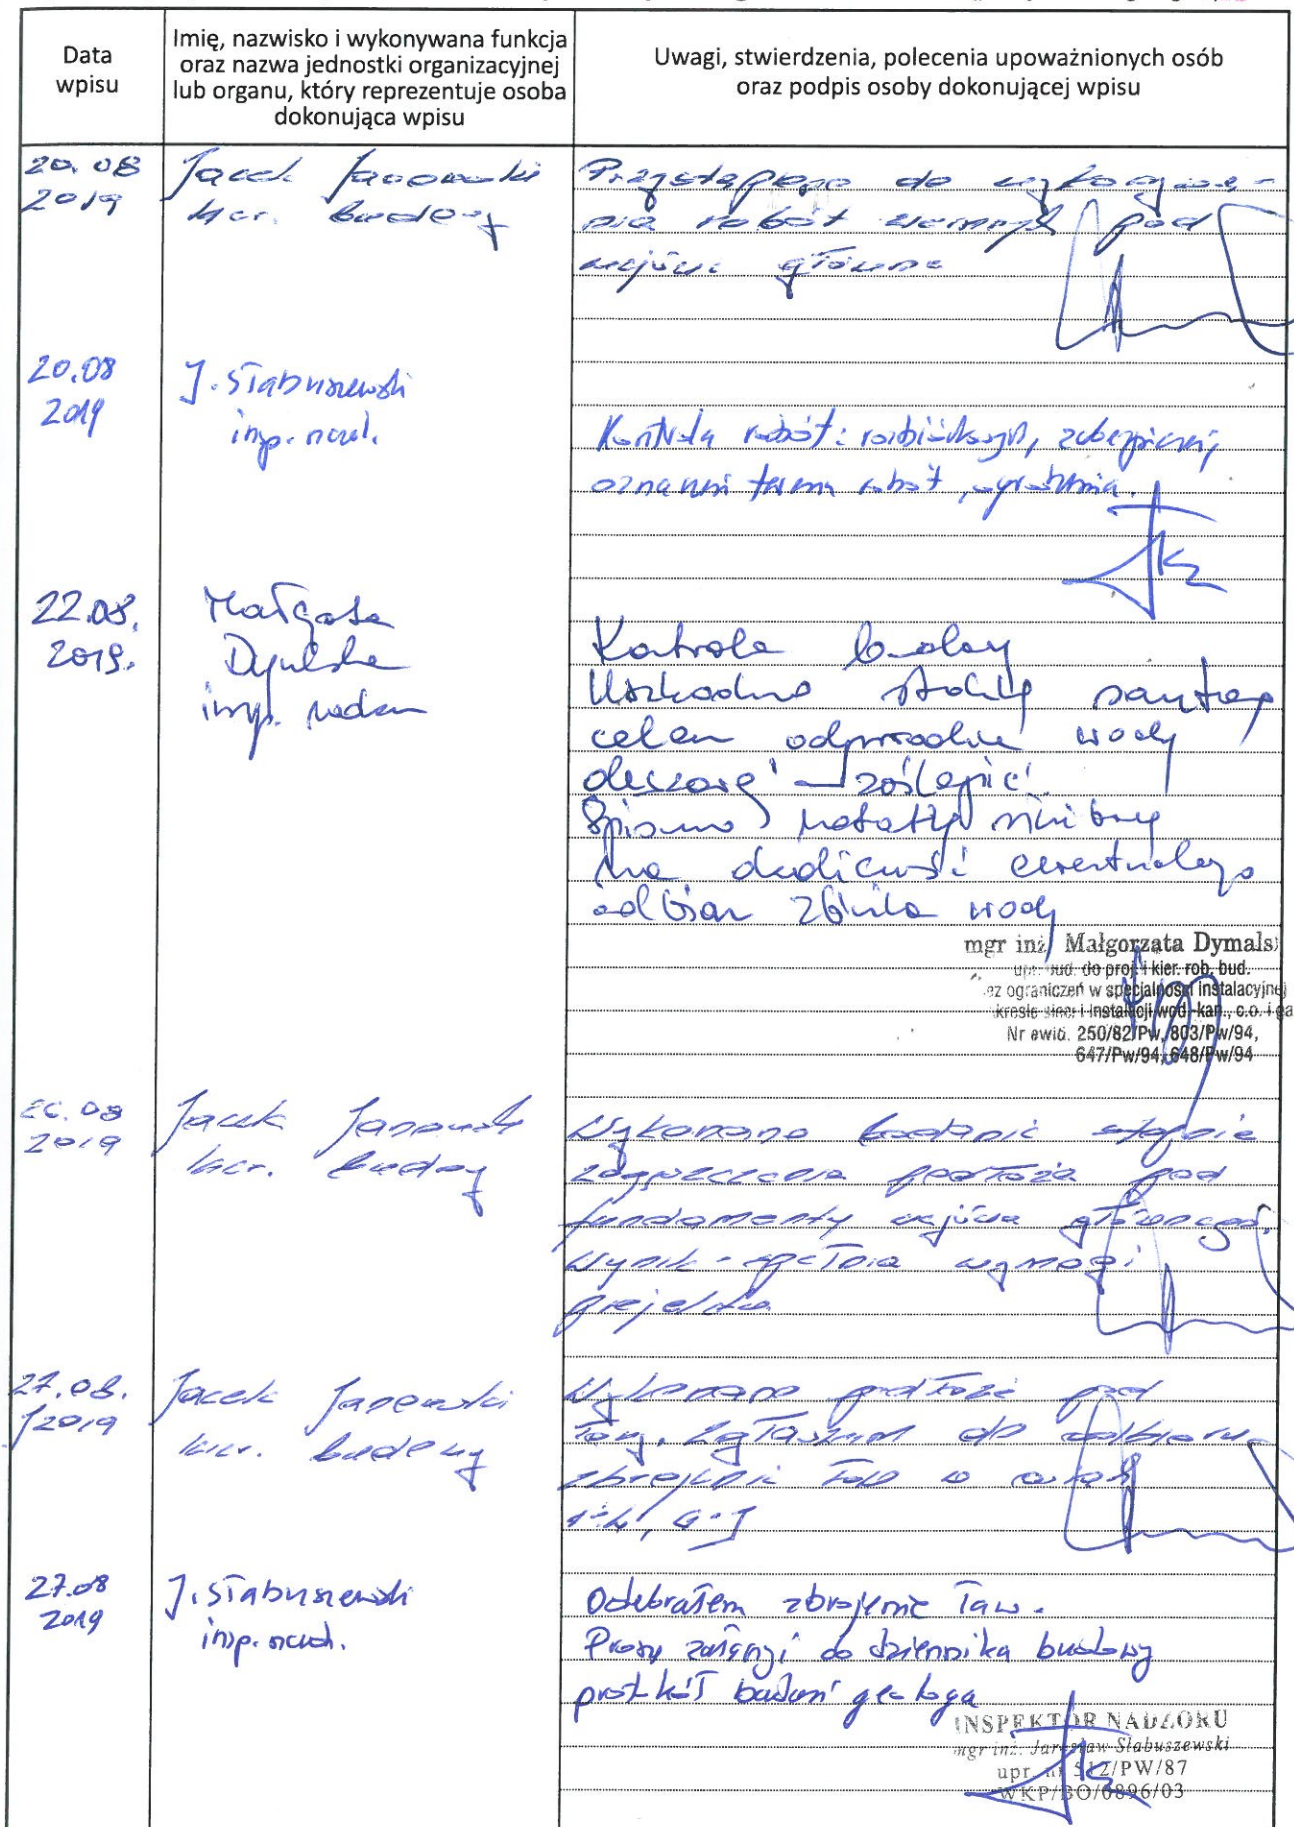 Data
wpisu
Imię, nazwisko i wykonywana funkcja
oraz nazwa jednostki organizacyjnej
lub organu, który reprezentuje osoba
dokonująca wpisu
Uwagi, stwierdzenia, polecenia upoważnionych osób
oraz podpis osoby dokonującej wpisu
20.08
2019
Jacek Janowski
kier. budowy
Przystąpiono do wykonywa-
nia robót ziemnych pod
wejście główne
20.08
2019
J. Słabuszewski
insp. nadz.
Kontrola robót: rozbiórkowych, zabezpieczeń,
oznaczeń terenu robót, ogrodzenia.
22.08.
2019.
Małgorzata
Dymalska
insp. nadzoru
Kontrola budowy
Uszkodzono
celem odprowadzenia wody
zaślepić
wody
mgr inż. Małgorzata Dymals
upr. bud. do proj. i kier. rob. bud.
ez ograniczeń w specjalności instalacyjnej
kresie sieci i instalacji wod.-kan., c.o. i ga
Nr ewid. 250/82/Pw, 803/Pw/94,
647/Pw/94, 648/Pw/94
26.08
2019
Jacek Janowski
kier. budowy
Wykonano badanie stopnia
zagęszczenia podłoża pod
fundamenty wejścia głównego.
Wynik - spełnia wymogi
projektu
27.08.
2019
Jacek Janowski
kier. budowy
Wykonano podłoże pod
ławy. Zgłaszam do odbioru
zbrojenie ław w osiach
27.08
2019
J. Słabuszewski
insp. nadz.
Odebrałem zbrojenie ław.
Proszę załączyć do dziennika budowy
protokół badań geologa
INSPEKTOR NADZORU
mgr inż. Jarosław Słabuszewski
upr. nr 512/PW/87
WKP/BO/0896/03